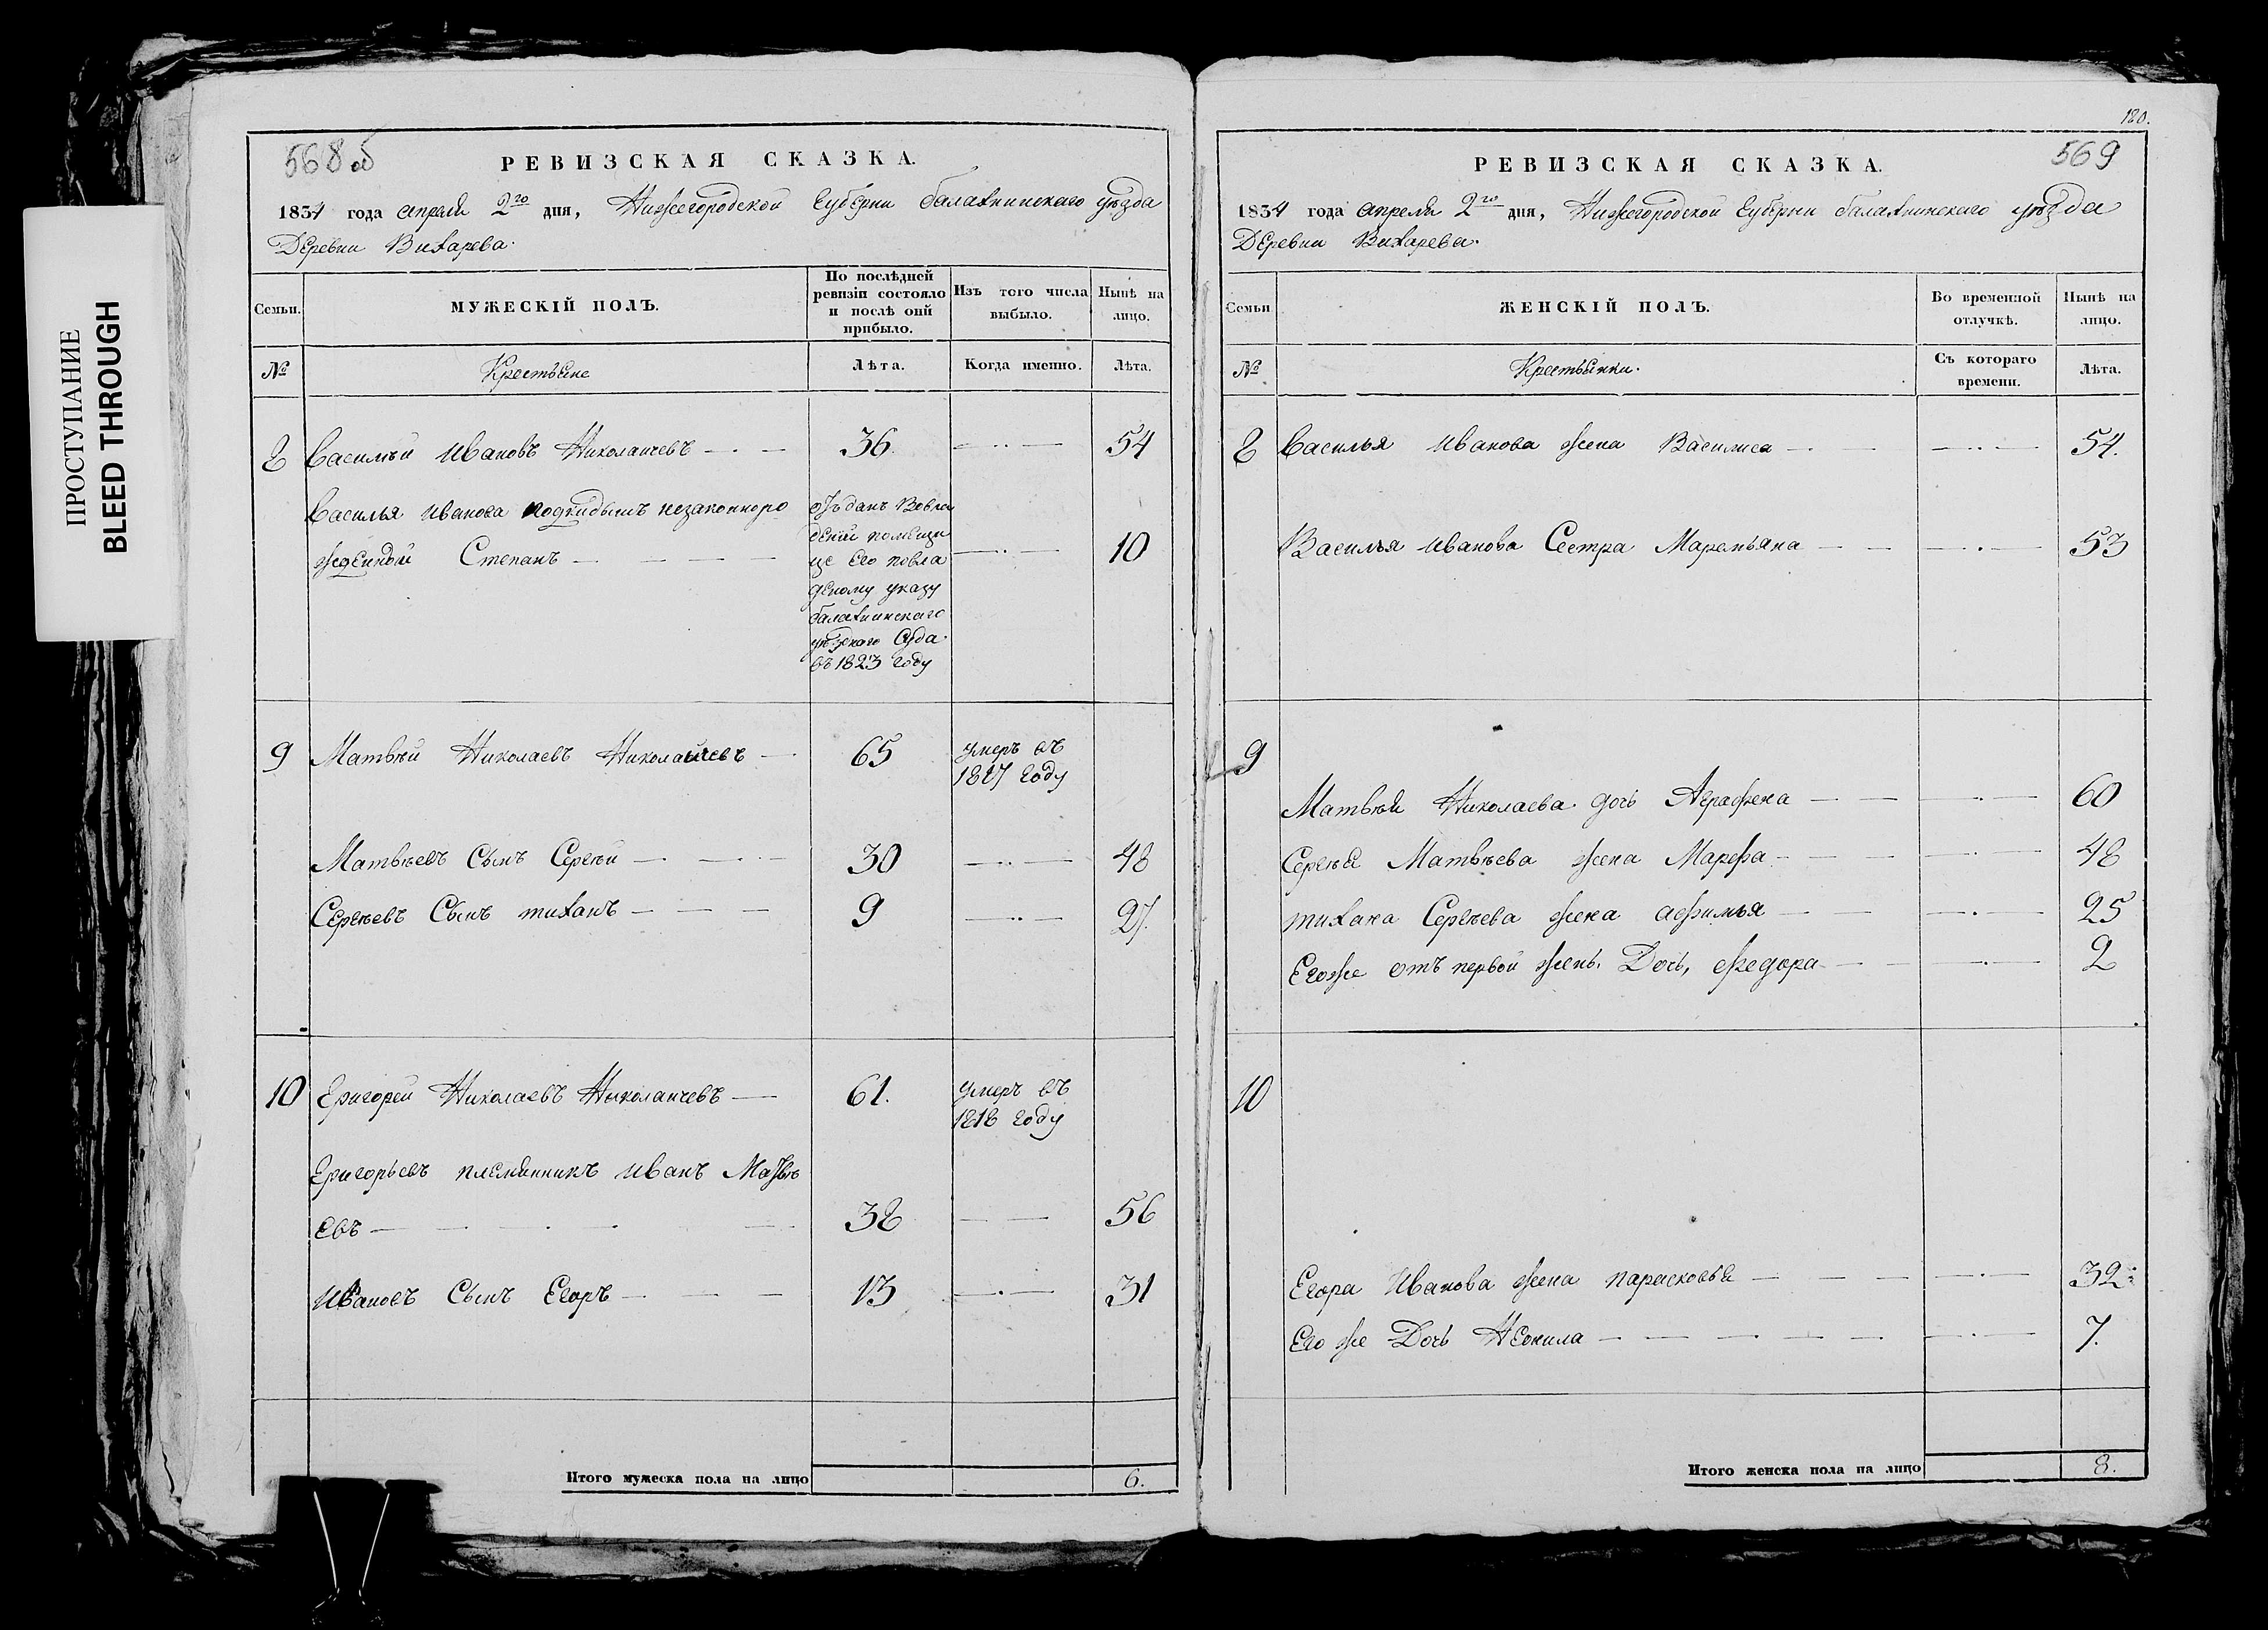 ПРОСТУПАНИЕ
BLEED THROUGH
568 об
РЕВИЗСКАЯ СКАЗКА.
1834 года апреля 2го дня, Нижегородской Губерни балахнинскаго уѣзда
Деревни Вихарева.
Семьи.
МУЖЕСКІЙ ПОЛЪ.
По послѣдней ревизіи состояло и послѣ оній прибыло.
Изъ того числа выбыло.
Нынѣ на лицо.
№
Крестьяне
Лѣта.
Когда именно.
Лѣта.
8 Василѣй Ивановъ Николаичевъ 36. 54
Василья Иванова подкидышъ незаконноро
жденной Степанъ 10
отъданъ Вовла
дении помещи
це Его повла
деному указу
балахнинскаго
уѣзднаго Суда
въ 1823 году
9 Матвѣй Николаевъ Николаичевъ 65 умеръ въ
1827 году
Матвѣевъ Сынъ Сергѣй 30 48
Сергѣевъ Сынъ тиханъ 9 27.
10 Григорей Николаевъ Николаичевъ 61. умеръ въ
1818 году
Григорьевъ племянникъ иванъ Матвѣ
евъ 38 56
Ивановъ Сынъ Егоръ 13 31
Итого мужеска пола на лицо 6.
180.
569
РЕВИЗСКАЯ СКАЗКА.
1834 года апреля 2го дня, Нижегородской Губерни балахнинскаго уѣзда
Деревни Вихарева.
Семьи
ЖЕНСКІЙ ПОЛЪ.
Во временной отлучкѣ.
Нынѣ на лицо.
№
Крестьянки.
Съ котораго времени.
Лѣта.
8 Василья Иванова жена Василиса 54.
Василья Иванова Сестра Маремьяна 53
9
Матвѣя Николаева дочь Аграфена 60
Сергѣя Матвѣева жена Марфа 48
тихана Сергѣева жена афимья 25
Егоже отъ первой жены Дочь, федора 2
10
Егора Иванова жена парасковья 32
Его же Дочь Неонила 7.
Итого женска пола на лицо 8.